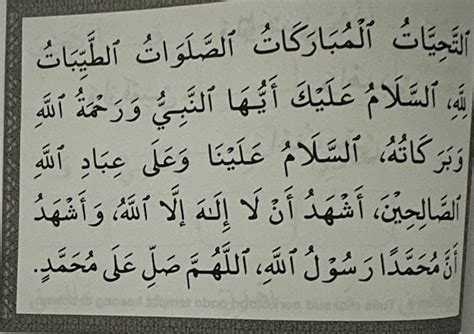 اَلتَّحِيَّاتُ اَلْمُبَارَكَاتُ اَلصَّلَوَاتُ اَلطَّيِّبَاتُ
لِلَّهِ، اَلسَّلَامُ عَلَيْكَ أَيُّهَا اَلنَّبِيُّ وَرَحْمَةُ اَللهِ
وَبَرَكَاتُهُ، اَلسَّلَامُ عَلَيْنَا وَعَلَى عِبَادِ اَللهِ
اَلصَّالِحِيْنَ، أَشْهَدُ أَنْ لَا إِلَهَ إِلَّا اَللهُ، وَأَشْهَدُ
أَنَّ مُحَمَّدًا رَسُوْلُ اَللهِ، اَللَّهُمَّ صَلِّ عَلَى مُحَمَّدٍ.